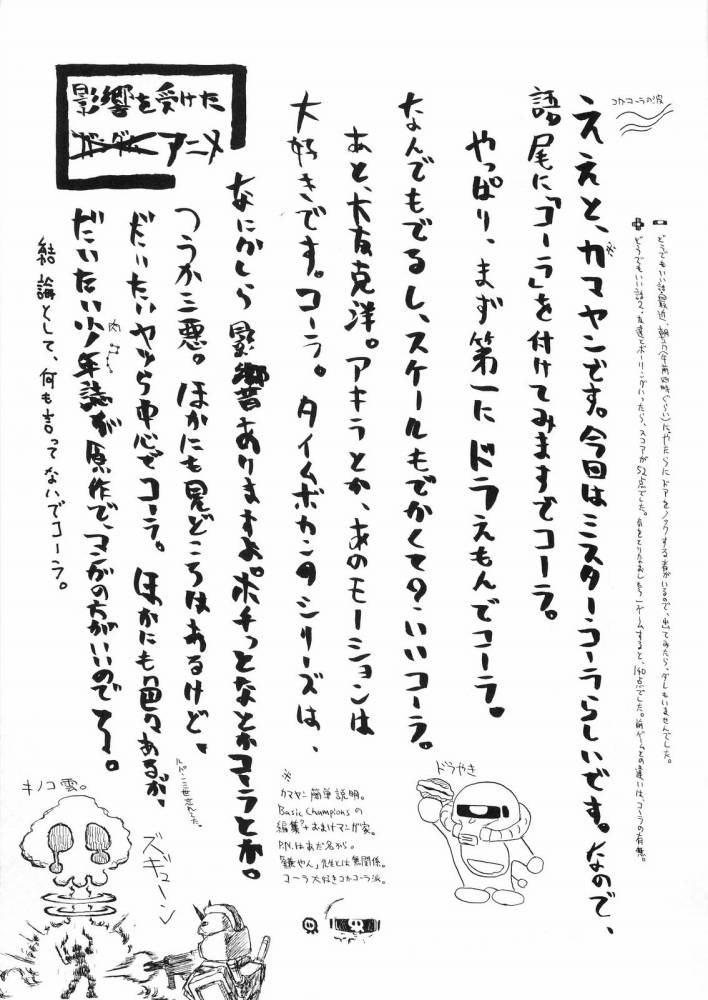 コカコーラの波
どうでもいい話。最近、朝方(午前四時ぐらい)にやたらにドアをノックする音がいるので、出てみたら、ダレもいませんでした。
どうでもいい話2、友達とボーリングいったら、スコアが52点でした。気をとりなおしもう1ゲームすると、140点でした。前ゲームとの違いは、コーラの有無。
ええと、カマヤンです。今回はミスターコーラらしいです。なので、
語尾に「コーラ」を付けてみますでコーラ。
やっぱり、まず第一にドラえもんでコーラ。
なんでもでるし、スケールもでかくての、いいコーラ。
あと、大友克洋。アキラとか、あのモーションは
大好きです。コーラ。タイムボカンのシリーズは、
影響を受けた
ガンダム アニメ
なにかしら影響ありますよ。ポチっとなとかコーラとか。
つうか三悪。ほかにも見どころはあるけど、
だいたいヤツら中心でコーラ。ほかにも色々あるが、
ルパン三世忘れてた。
だいたい少年誌が原作で、マンガの方がいいのでラ。
結論として、何も言ってないでコーラ。
※
カマヤン簡単説明。
Basic Championsの
編集?+おまけマンガ家。
P.N.はあだ名から。
「鎌やん」先生とは無関係。
コーラ大好きコカコーラ派。
ドラやき
キノコ雲。
ズギューン